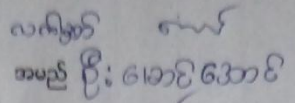 လက်မှတ်
အမည် ဦးအောင်အောင်